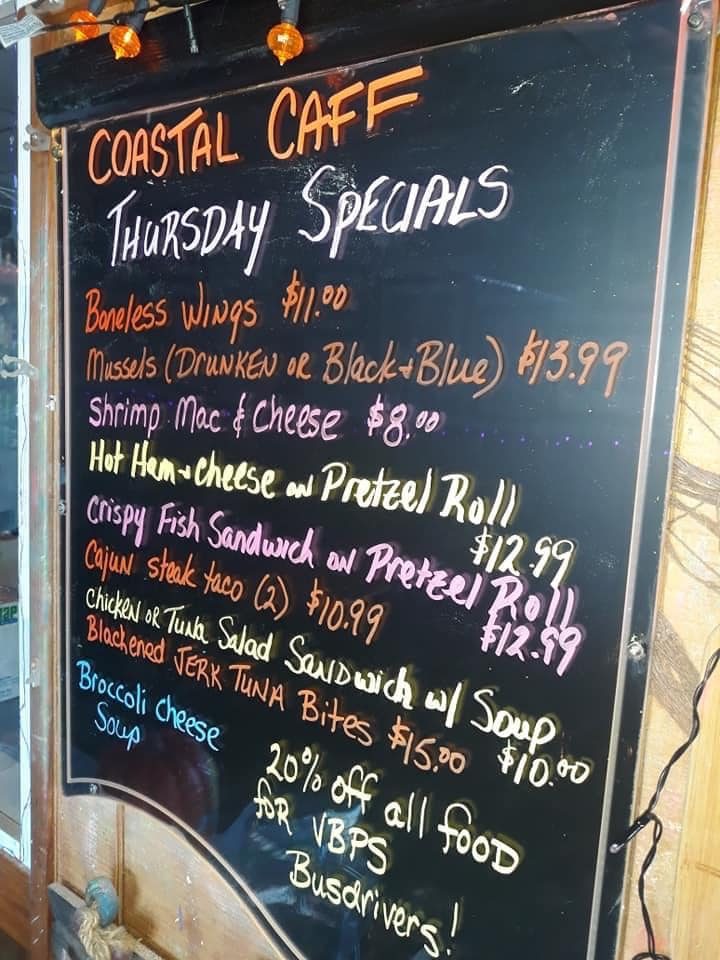 COASTAL CAFE
THURSDAY SPECIALS
Boneless WINgS $11.00
Mussels (DRUNKEN OR Black+Blue) $13.99
Shrimp Mac & Cheese $8.00
Hot Ham + cheese on Pretzel Roll
$12.99
Crispy Fish Sandwich on Pretzel Roll
$12.99
Cajun steak taco (2) $10.99
chicken or Tuna Salad SANDwich w/ Soup
$10.00
Blackened JERK TUNA Bites $15.00
Broccoli cheese
Soup
20% off all fooD
foR VBPS
Busdrivers!